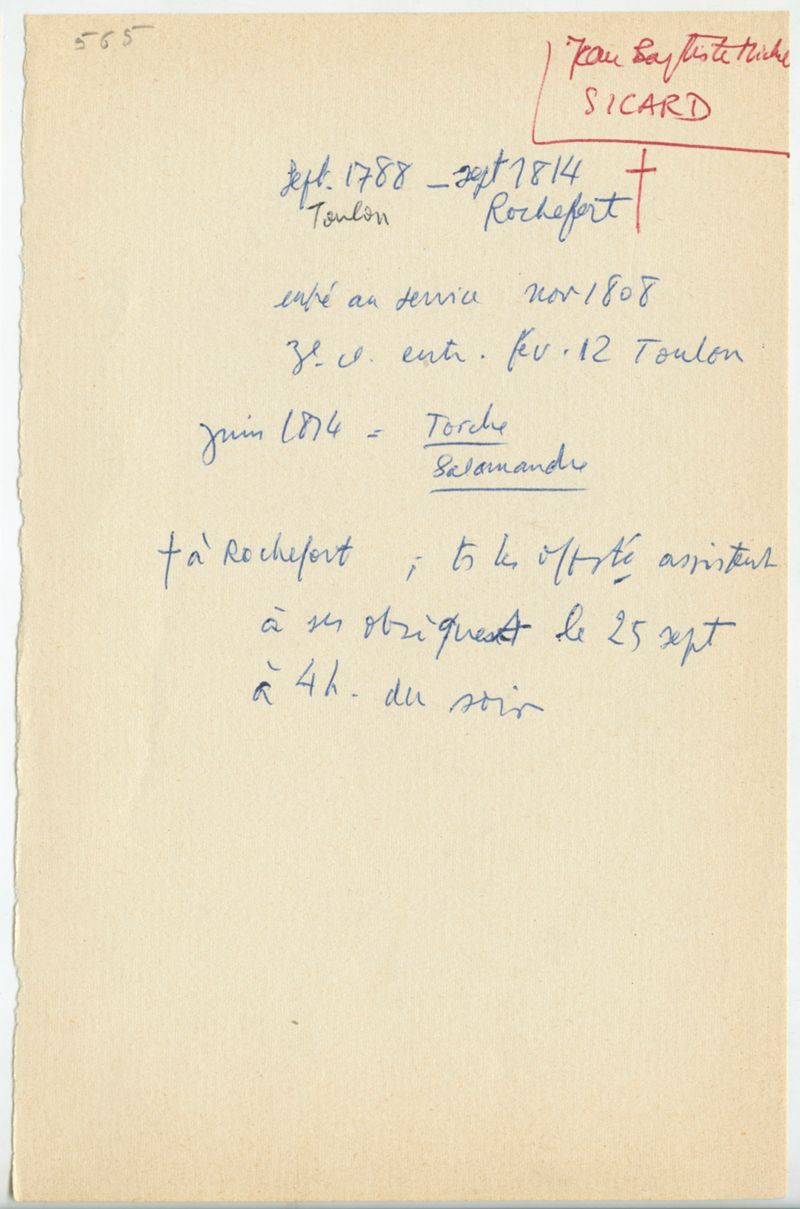 565
Jean Baptiste Miche
SICARD
sept. 1788 – sept 1814 †
Toulon Rochefort
entré au service nov 1808
3e. cl. entr. fév. 12 Toulon
juin 1814 = Torche
Salamandre
† à Rochefort ; ts les off. santé assistent
à ses obsèques le 25 sept
à 4h. du soir